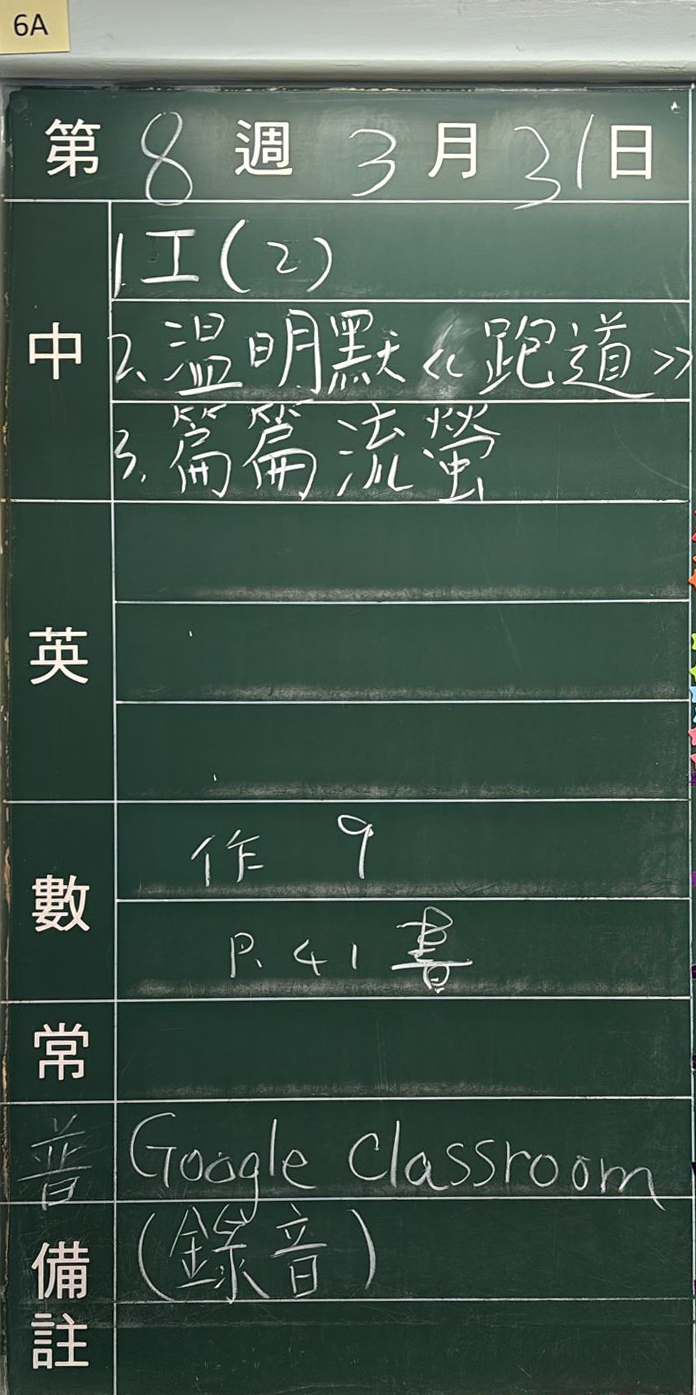 6A
第 8 週 3 月 31 日
中
1.工(2)
2.溫明默《跑道》
3.篇篇流螢
英
數
作 9
P.41 書
常
普 Google Classroom
(錄音)
備註